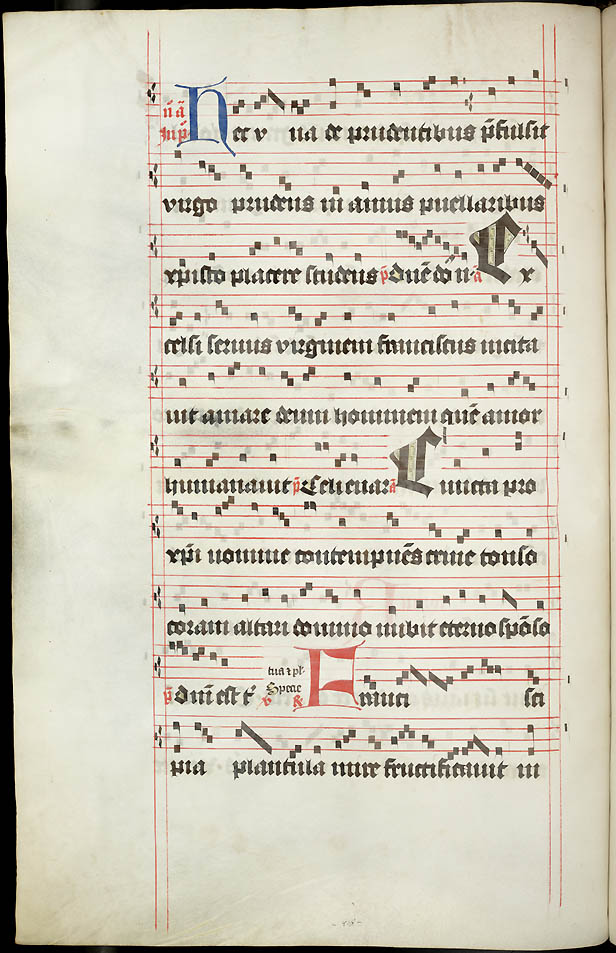 n̄ ā Hec v na de prudentibus p̄fulsit
virgo prudens in annis puellaribus
xp̄isto placere studens p̄ Dn̄e dō n̄ a Ex
celsi seruus virginem franciscus incita
uit amare deum hominem quē amor
humanauit p̄ Celi enar ā Cuncta pro
xp̄i nomine contempnēs crine tonso
coram altari domino nubit eterno spōso
p̄ Dn̄i est t̄ v tua t pl Speae R Francisci
pia plantula mire fructificauit in